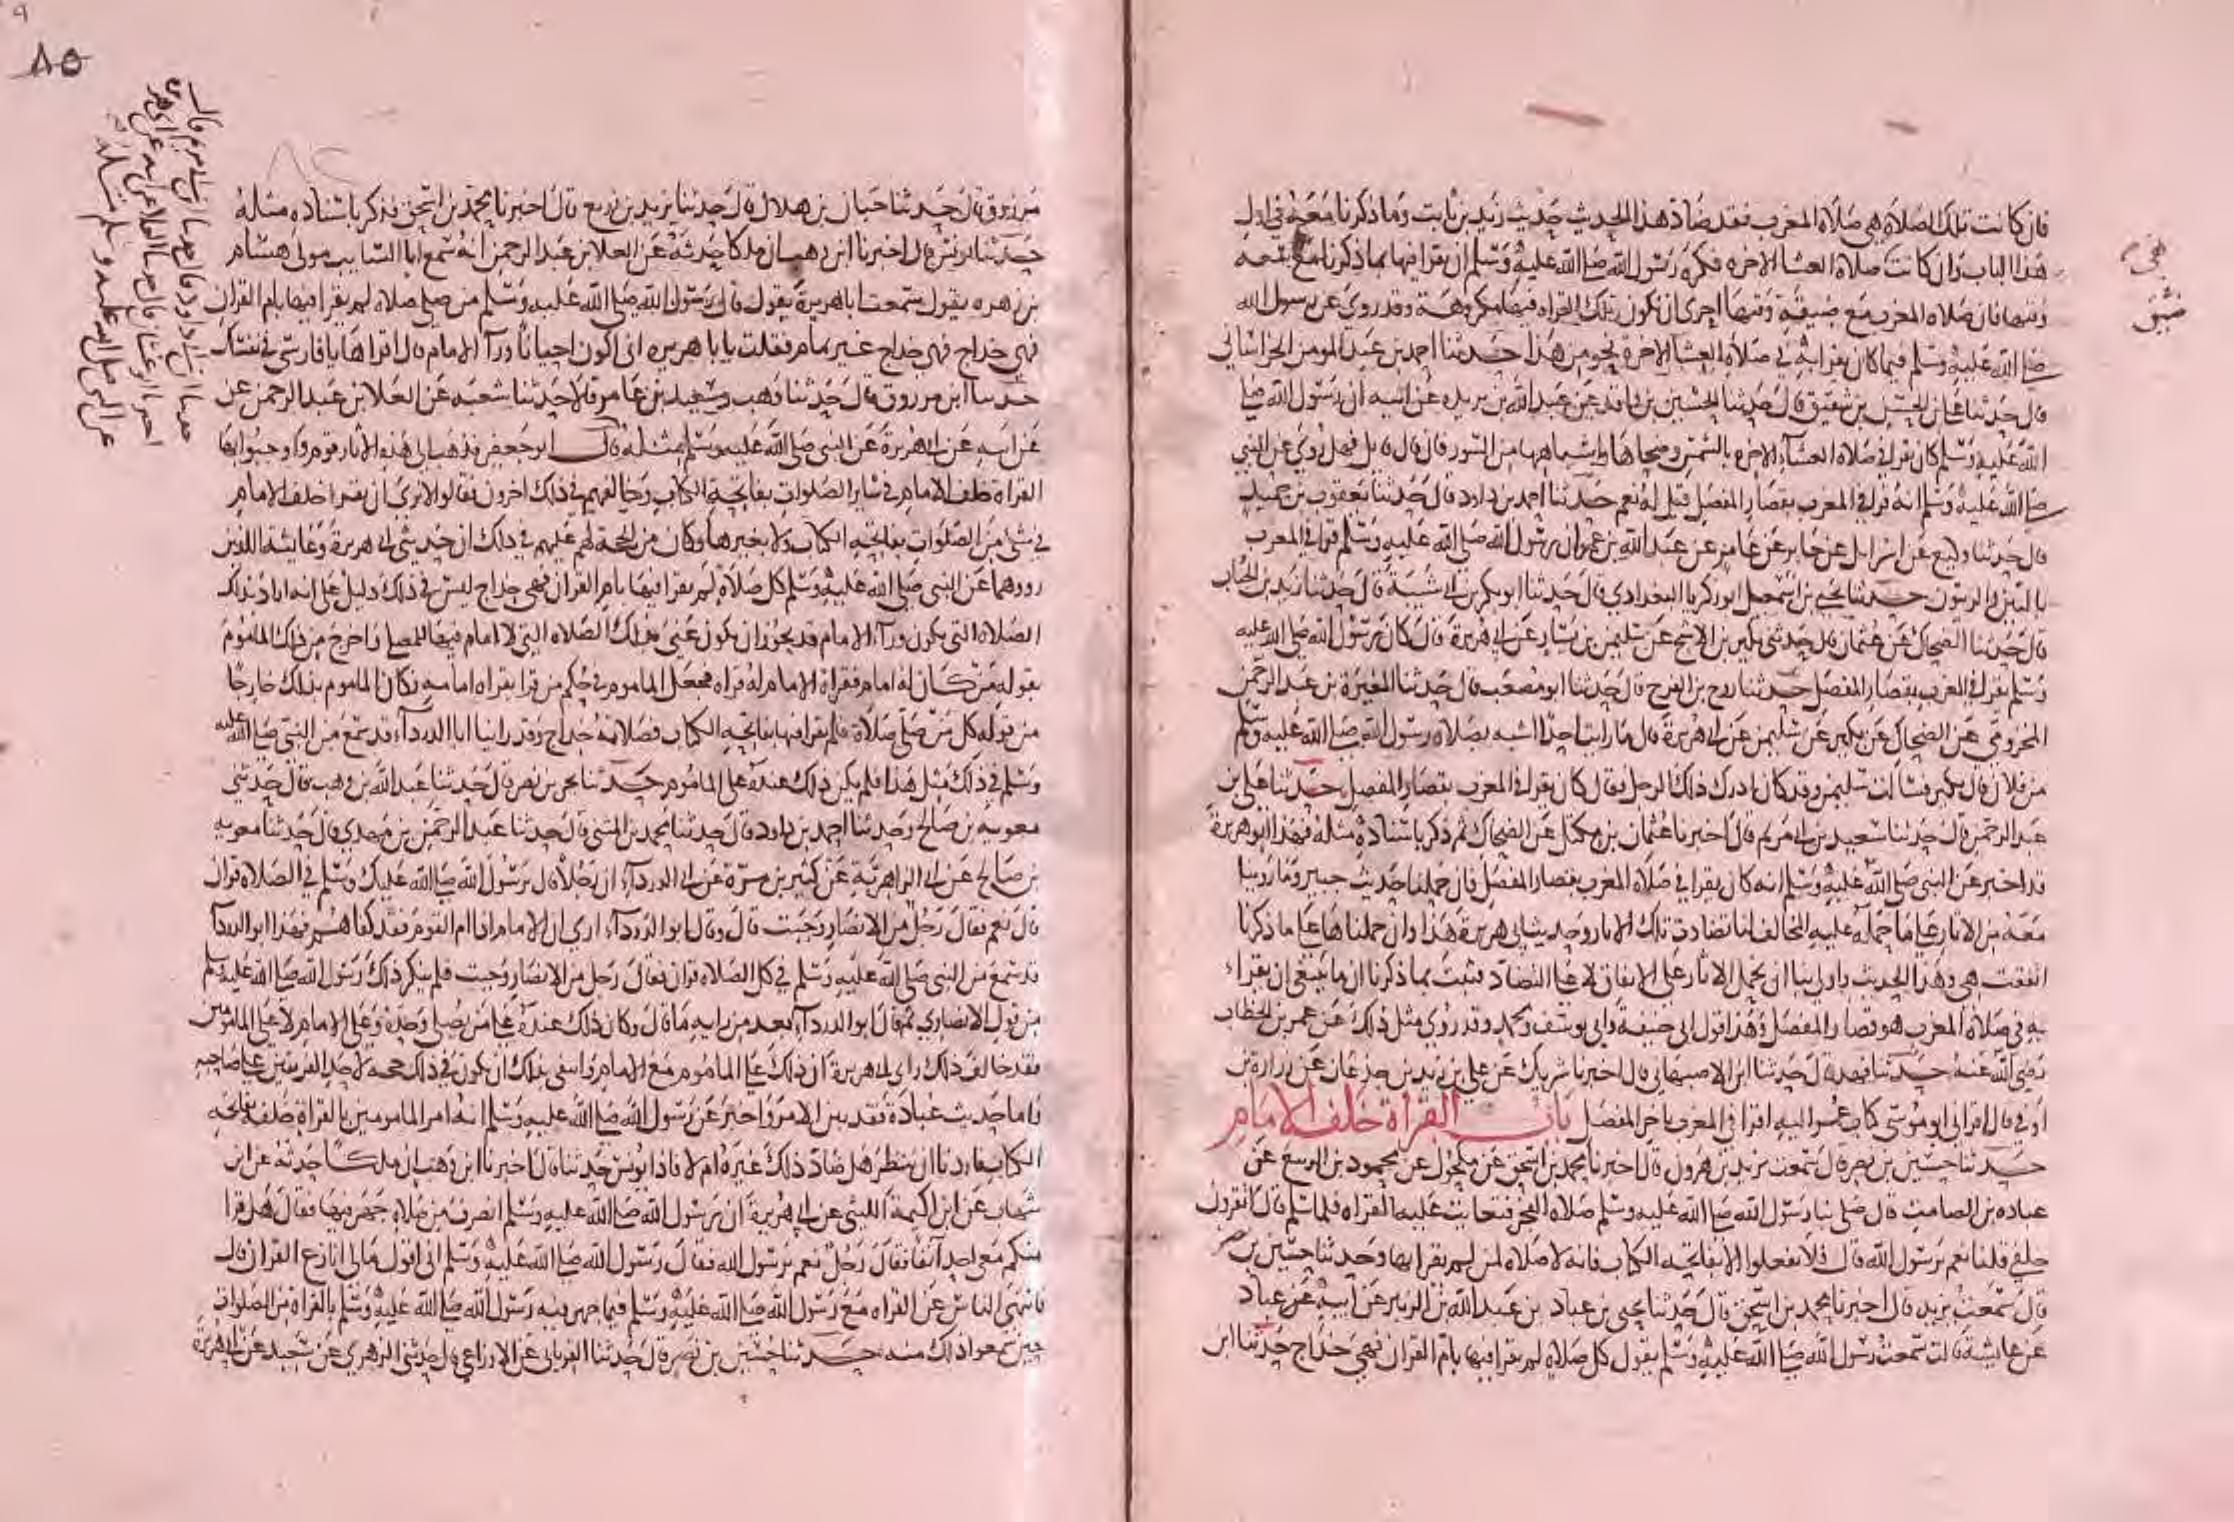 فان كانت تلك الصلاة هي صلاة المغرب فقد ضاد هذا الحديث حديث زيد بن ثابت وما ذكرنا معه في اول
هذا الباب وان كانت صلاة العشا الاخره فكره رسول الله صلى الله عليه وسلم ان يقرا فيها بما ذكرنا مع سعه
وقتها فان صلاه المغرب مع ضيق وقتها احرى ان تكون تلك القراه فيها مكروهة وقد روي عن رسول الله
صلى الله عليه وسلم فيما كان يقرا به في صلاة العشا الاخرة نحو من هذا حدثنا احمد بن عبد المومن الخراساني
قال حدثنا علي بن الحسن بن شقيق قال حدثنا الحسين بن واقد عن عبد الله بن بريده عن ابيه ان رسول الله صلى
الله عليه وسلم كان يقرا في صلاة العشاء الاخره بالشمس وضحاها واشباهها من السور فان قال قايل فهل روي عن النبي
صلى الله عليه وسلم انه قرا في المغرب بقصار المفصل قيل له نعم حدثنا احمد بن داود قال حدثنا يعقوب بن حميد
قال حدثنا وكيع عن اسرايل عن جابر عن عامر عن عبد الله بن عمر ان رسول الله صلى الله عليه وسلم قرا في المغرب
بالتين والزيتون حدثنا يحيى بن اسمعيل ابو زكريا البغدادي قال حدثنا ابو بكر بن ابي شيبة قال حدثنا زيد بن الحباب
قال حدثنا الضحاك عن عثمان قال حدثني بكير بن الاشج عن سليمن بن يسار عن ابي هريرة قال كان رسول الله صلى الله عليه
وسلم يقرا في المغرب بقصار المفصل حدثنا روح بن الفرج قال حدثنا ابو مصعب قال حدثنا المغيرة بن عبد الرحمن
المخزومي عن الضحاك عن بكير عن سليمن عن ابي هريرة قال ما رايت احدا اشبه بصلاة رسول الله صلى الله عليه وسلم
من فلان قال بكير فسالت سليمن وقد كان ادرك ذلك الرجل فقال كان يقرا في المغرب بقصار المفصل حدثنا علي بن
عبد الرحمن قال حدثنا سعيد بن ابي مريم قال اخبرنا عثمان بن مكتل عن الضحاك ثم ذكر باسناده مثله فهذا ابو هريرة
قد اخبر عن النبي صلى الله عليه وسلم انه كان يقرا في صلاة المغرب بقصار المفصل فان حملنا حديث جبير وما روينا
معه من الاثار على ما حمله عليه المخالف لنا تضادت تلك الاثار وحديث ابي هريرة هذا وان حملناها على ما ذكرنا
اتفقت هي وهذا الحديث واولى بنا ان نحمل الاثار على الاتفاق لا على التضاد فثبت بما ذكرنا ان ما ينبغي ان يقراء
به في صلاة المغرب هو قصار المفصل وهذا قول ابي حنيفة وابي يوسف ومحمد وقد روي مثل ذلك عن عمر بن الخطاب
رضي الله عنه حدثنا فهد قال حدثنا ابن الاصبهاني قال اخبرنا شريك عن علي بن زيد بن جدعان عن زرارة بن
اوفى قال اقراني ابو موسى كتاب عمر اليه اقرا في المغرب باخر المفصل باب القراة خلف الامام
حدثنا حسين بن نصر قال سمعت يزيد بن هرون قال اخبرنا محمد بن اسحق عن مكحول عن محمود بن الربيع عن
عباده بن الصامت قال صلى بنا رسول الله صلى الله عليه وسلم صلاة الفجر فتعايت عليه القراه فلما سلم قال اتقرون
خلفي قلنا نعم يرسول الله قال فلا تفعلوا الا بفاتحة الكتاب فانه لا صلاه لمن لم يقرا بها وحدثنا حسين بن نصر
قال سمعت يزيد قال اخبرنا محمد بن اسحق قال حدثنا يحيى بن عباد بن عبد الله بن الزبير عن ابيه عن عباد
عن عايشة قالت سمعت رسول الله صلى الله عليه وسلم يقول كل صلاة لم يقرا فيها بام القران فهي خداج حدثنا ابن
٨٥
مرزوق قال حدثنا حبان بن هلال قال حدثنا يزيد بن زريع قال اخبرنا محمد بن اسحق فذكر باسناده مثله
حدثنا يونس قال اخبرنا ابن وهب ان ملكا حدثه عن العلا بن عبد الرحمن انه سمع ابا السايب مولى هشام
بن زهره يقول سمعت ابا هريرة يقول قال رسول الله صلى الله عليه وسلم من صلى صلاه لم يقرا فيها بام القران
فهي خداج فهي خداج غير تمام فقلت يا با هريره اني اكون احيانا ورآ الامام قال اقراها يا فارسي في نفسك
حدثنا ابن مرزوق قال حدثنا وهب وسعيد بن عامر قالا حدثنا شعبة عن العلا بن عبد الرحمن عن
عن ابيه عن ابي هريرة عن النبي صلى الله عليه وسلم بمثله قال ابو جعفر فذهب الى هذه الاثار قوم واوجبوا بها
القراه خلف الامام في ساير الصلوات بفاتحة الكتاب وخالفهم في ذلك اخرون فقالوا لا نرى ان يقرا خلف الامام
في شي من الصلوات بفاتحة الكتاب ولا بغيرها وكان من الحجة لهم عليهم في ذلك ان حديثي ابي هريرة وعايشة اللذين
رووهما عن النبي صلى الله عليه وسلم كل صلاة لم يقرا فيها بام القران فهي خداج ليس في ذلك دليل على انه اراد بذلك
الصلاة التي يكون ورآء الامام قد يجوز ان يكون عنى بذلك الصلاه التي لا امام فيها للمصلي واخرج من ذلك الماموم
بقوله من كان له امام فقراة الامام له قراه فجعل الماموم في حكم من قرا بقراه امامه فكان الماموم بذلك خارجا
من قوله كل من صلى صلاة فلم يقرا فيها بفاتحة الكتاب فصلاته خداج وقد راينا ابا الدرداء قد سمع من النبي صلى الله عليه
وسلم في ذلك مثل هذا فلم يكن ذلك عنده على الماموم حدثنا بحر بن نصر قال حدثنا عبد الله بن وهب قال حدثني
معويه بن صالح وحدثنا احمد بن داود قال حدثنا محمد بن المثنى قال حدثنا عبد الرحمن بن مهدي قال حدثنا معويه
بن صالح عن ابي الزاهرية عن كثير بن مرة عن ابي الدرداء ان رجلا قال يرسول الله صلى الله عليك وسلم في الصلاه قران
قال نعم فقال رجل من الانصار وجبت قال وقال ابو الدرداء ارى ان الامام اذا ام القوم فقد كفاهم فهذا ابو الدردا
قد سمع من النبي صلى الله عليه وسلم في كل الصلاه قران فقال رجل من الانصار وجبت فلم ينكر ذلك رسول الله صلى الله عليه وسلم
من قول الانصاري ثم قال ابو الدرداء بعد من رايه ما قال وكان ذلك عنده على من يصلي وحده وعلى الامام لا على المامومين
فقد خالف ذلك راي ابي هريرة ان ذلك على الماموم مع الامام وانتفى بذلك ان يكون في ذلك حجه لاحد الفريقين على صاحبه
فاما حديث عبادة فقد بين الامر واخبر عن رسول الله صلى الله عليه وسلم انه امر المامومين بالقراة خلفه بفاتحه
الكتاب فاردنا ان ننظر هل ضاد ذلك غيره ام لا فاذا يونس حدثنا قال اخبرنا ابن وهب ان ملكا حدثه عن ابن
شهاب عن ابن اكيمة الليثي عن ابي هريرة ان رسول الله صلى الله عليه وسلم انصرف من صلاة جهر فيها فقال هل قرا
منكم معي احد آنفا فقال رجل نعم يرسول الله فقال رسول الله صلى الله عليه وسلم اني اقول مالي انازع القران قال
فانتهى الناس عن القراه مع رسول الله صلى الله عليه وسلم فيما جهر فيه رسول الله صلى الله عليه وسلم بالقراة من الصلوات
حين سمعوا ذلك منه حدثنا حسين بن نصر قال حدثنا الفريابي عن الاوزاعي قال حدثني الزهري عن سعيد عن ابي هريرة
حدثنا ابن ابي داود قال حدثنا ابن ابي مريم قال
اخبرنا ابو غسان قال حدثنا العلا عن ابيه عن ابي هريرة
عن النبي صلى الله عليه وسلم مثله